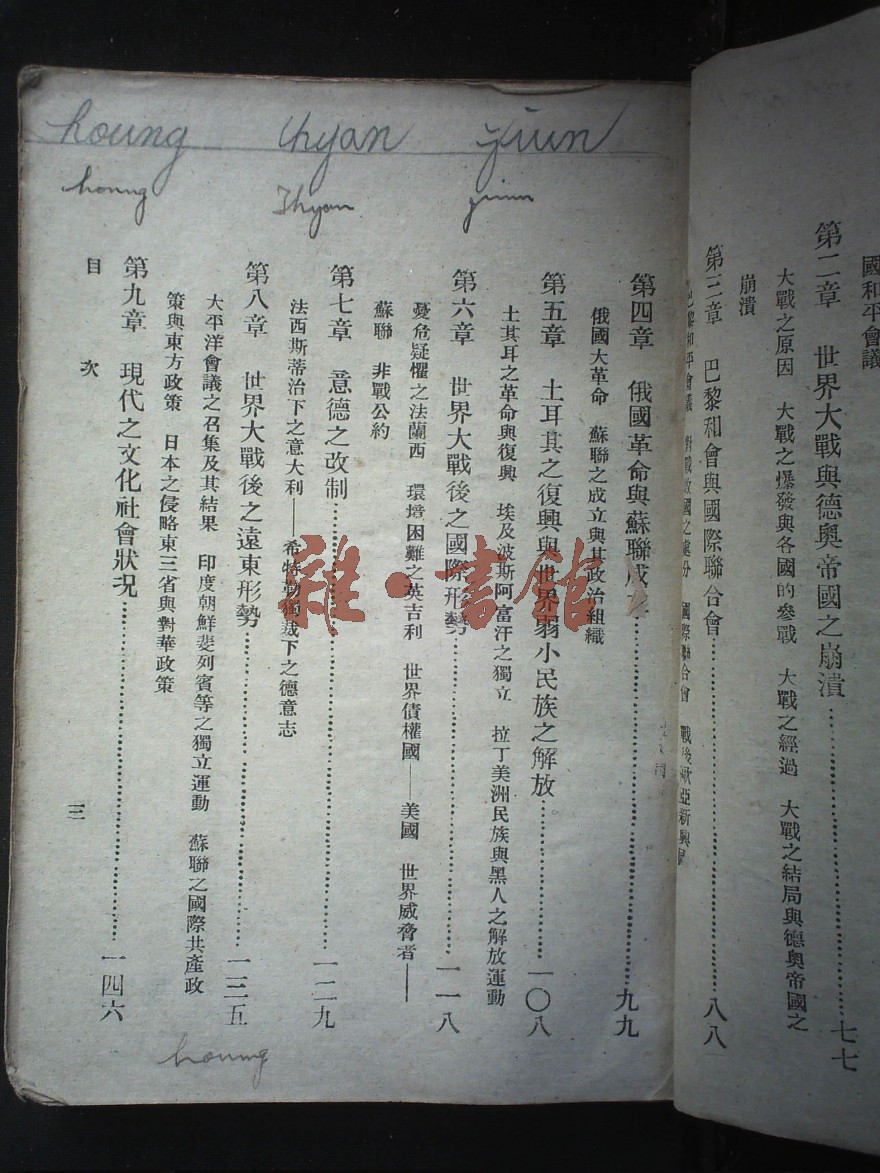 houng thyan jiun
houng Thyan jiun
國和平會議
第二章 世界大戰與德奧帝國之崩潰……七七
大戰之原因 大戰之爆發與各國的參戰 大戰之經過 大戰之結局與德奧帝國之
崩潰
第三章 巴黎和會與國際聯合會……八八
巴黎和平會議 對戰敗國之處分 國際聯合會 戰後歐亞新興
第四章 俄國革命與蘇聯成立……九九
俄國大革命 蘇聯之成立與其政治組織
第五章 土耳其之復興與世界弱小民族之解放……一〇八
土其耳之革命與復興 埃及波斯阿富汗之獨立 拉丁美洲民族與黑人之解放運動
第六章 世界大戰後之國際形勢……一一八
憂危疑懼之法蘭西 環境困難之英吉利 世界債權國——美國 世界威脅者——
蘇聯 非戰公約
第七章 意德之改制……一二九
法西斯蒂治下之意大利——希特勒獨裁下之德意志
第八章 世界大戰後之遠東形勢……一三五
太平洋會議之召集及其結果 印度朝鮮斐列賓等之獨立運動 蘇聯之國際共產政
策與東方政策 日本之侵略東三省與對華政策
第九章 現代之文化社會狀况……一四六
目次 三
houng
雜·書館